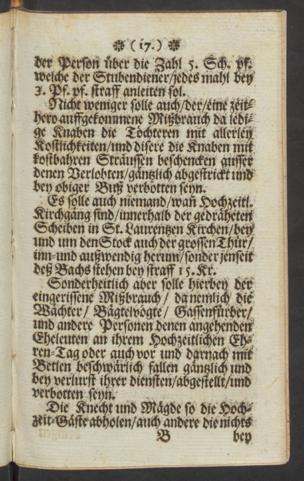 ❉ (17.) ❉
der Person über die Zahl 5. Sch. pf.
welche der Stubendiener/jedes mahl bey
3. Pf. pf. straff anleiten sol.
Nicht weniger solle auch/der/eine zeit-
hero auffgekommene Mißbrauch da ledi-
ge Knaben die Töchteren mit allerley
Kostlichkeiten/und disere die Knaben mit
kostbahren Sträussen beschencken ausser
denen Verlobten/gäntzlich abgestrickt und
bey obiger Buß verbotten seyn.
Es solle auch niemand/wañ Hochzeitl.
Kirchgäng sind/innerhalb der gedräheten
Scheiben in St. Laurentzen Kirchen/bey
und um den Stock auch der grossen Thür/
inn-und außwendig herum/sonder jenseit
deß Bachs stehen bey straff 15. Kr.
Sonderheitlich aber solle hierbey der
eingerissene Mißbrauch/ da nemlich die
Wächter/ Bägtelvögte/ Gassenfürber/
und andere Personen denen angehenden
Eheleuten an ihrem Hochzeitlichen Eh-
ren-Tag oder auch vor und darnach mit
Betlen beschwärlich fallen gäntzlich und
bey verlurst ihrer diensten/abgestellt/und
verbotten seyn.
Die Knecht und Mägde so die Hoch-
zeit-Gäste abholen/auch andere die nichts
B bey